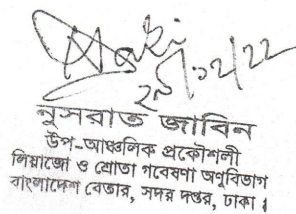 ২৯/১২/২২
নুসরাত জাবিন
উপ-আঞ্চলিক প্রকৌশলী
লিয়াজো ও শ্রোতা গবেষণা অনুবিভাগ
বাংলাদেশ বেতার, সদর দপ্তর, ঢাকা।